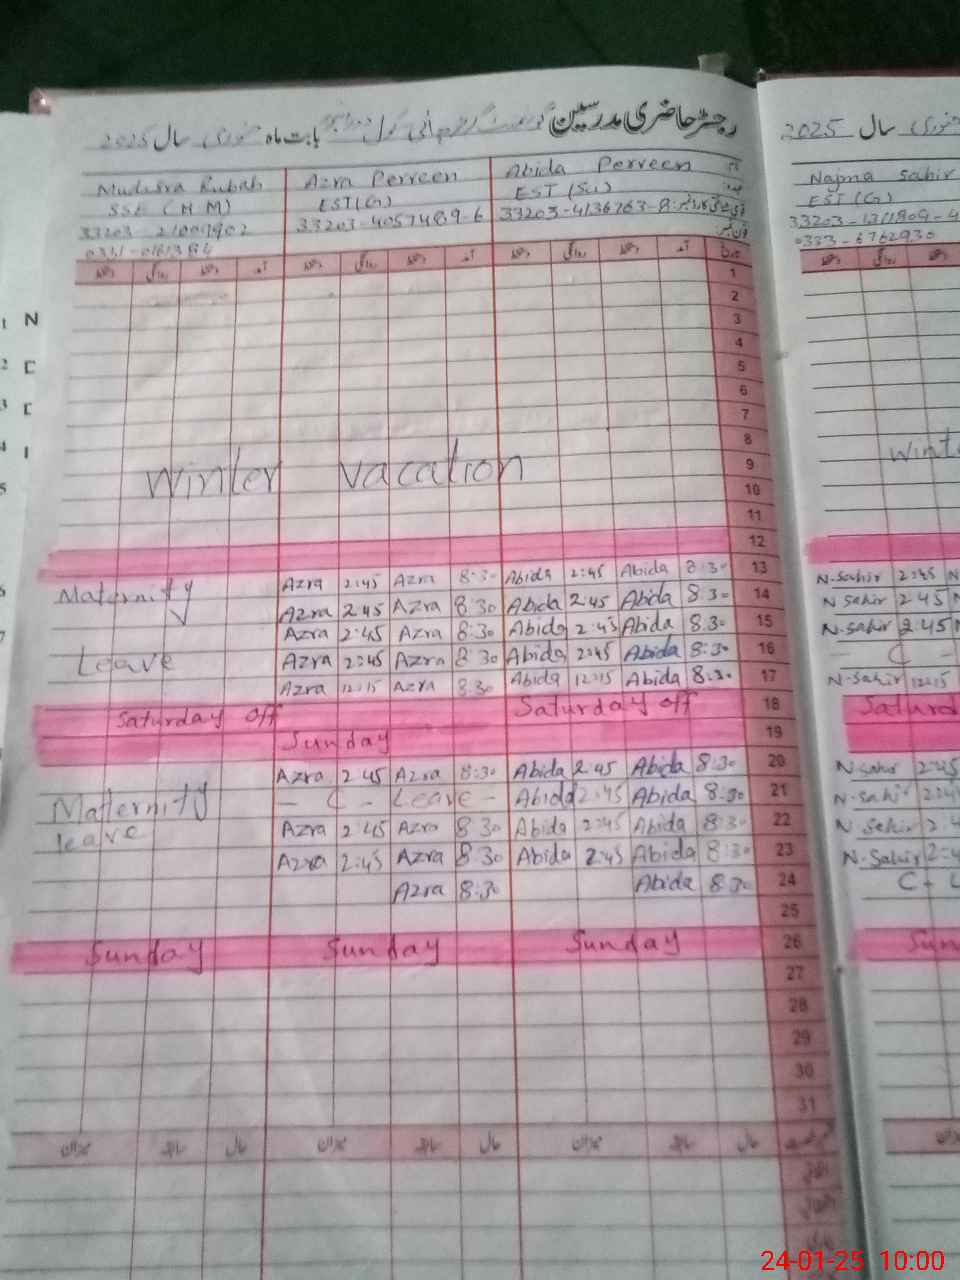 رجسٹر حاضری مدرسین بابت ماہ جنوری سال 2025
Mudisra Rubab Azra Perveen Abida Perveen
SSE (HM) EST(G) EST (Sci)
33203-4057489-6 33203-4136763-8
1
2
3
4
5
6
7
8
Winter vacation 9
10
11
12
Azra 2:45 Azra 8:30 Abida 2:45 Abida 8:30 13
Maternity Azra 2:45 Azra 8:30 Abida 2:45 Abida 8:30 14
Azra 2:45 Azra 8:30 Abida 2:45 Abida 8:30 15
Leave Azra 2:45 Azra 8:30 Abida 2:45 Abida 8:30 16
Azra 12:15 Azra 8:30 Abida 12:15 Abida 8:30 17
Saturday off Saturday off 18
Sunday 19
Azra 2:45 Azra 8:30 Abida 2:45 Abida 8:30 20
Maternity - C - Leave - Abida 2:45 Abida 8:30 21
leave Azra 2:45 Azra 8:30 Abida 2:45 Abida 8:30 22
Azra 2:45 Azra 8:30 Abida 2:45 Abida 8:30 23
Azra 8:30 Abida 8:30 24
25
Sunday Sunday Sunday 26
27
28
29
30
31
جنوری سال 2025
Najma Sahir
EST (G)
0333-6762930
N-Sahir 2:45
N Sahir 2:45
N-Sahir 2:45
- C -
N-Sahir 12:15
N-Sahir 2:45
N-Sahir
N Sahir
N-Sahir
24-01-25 10:00